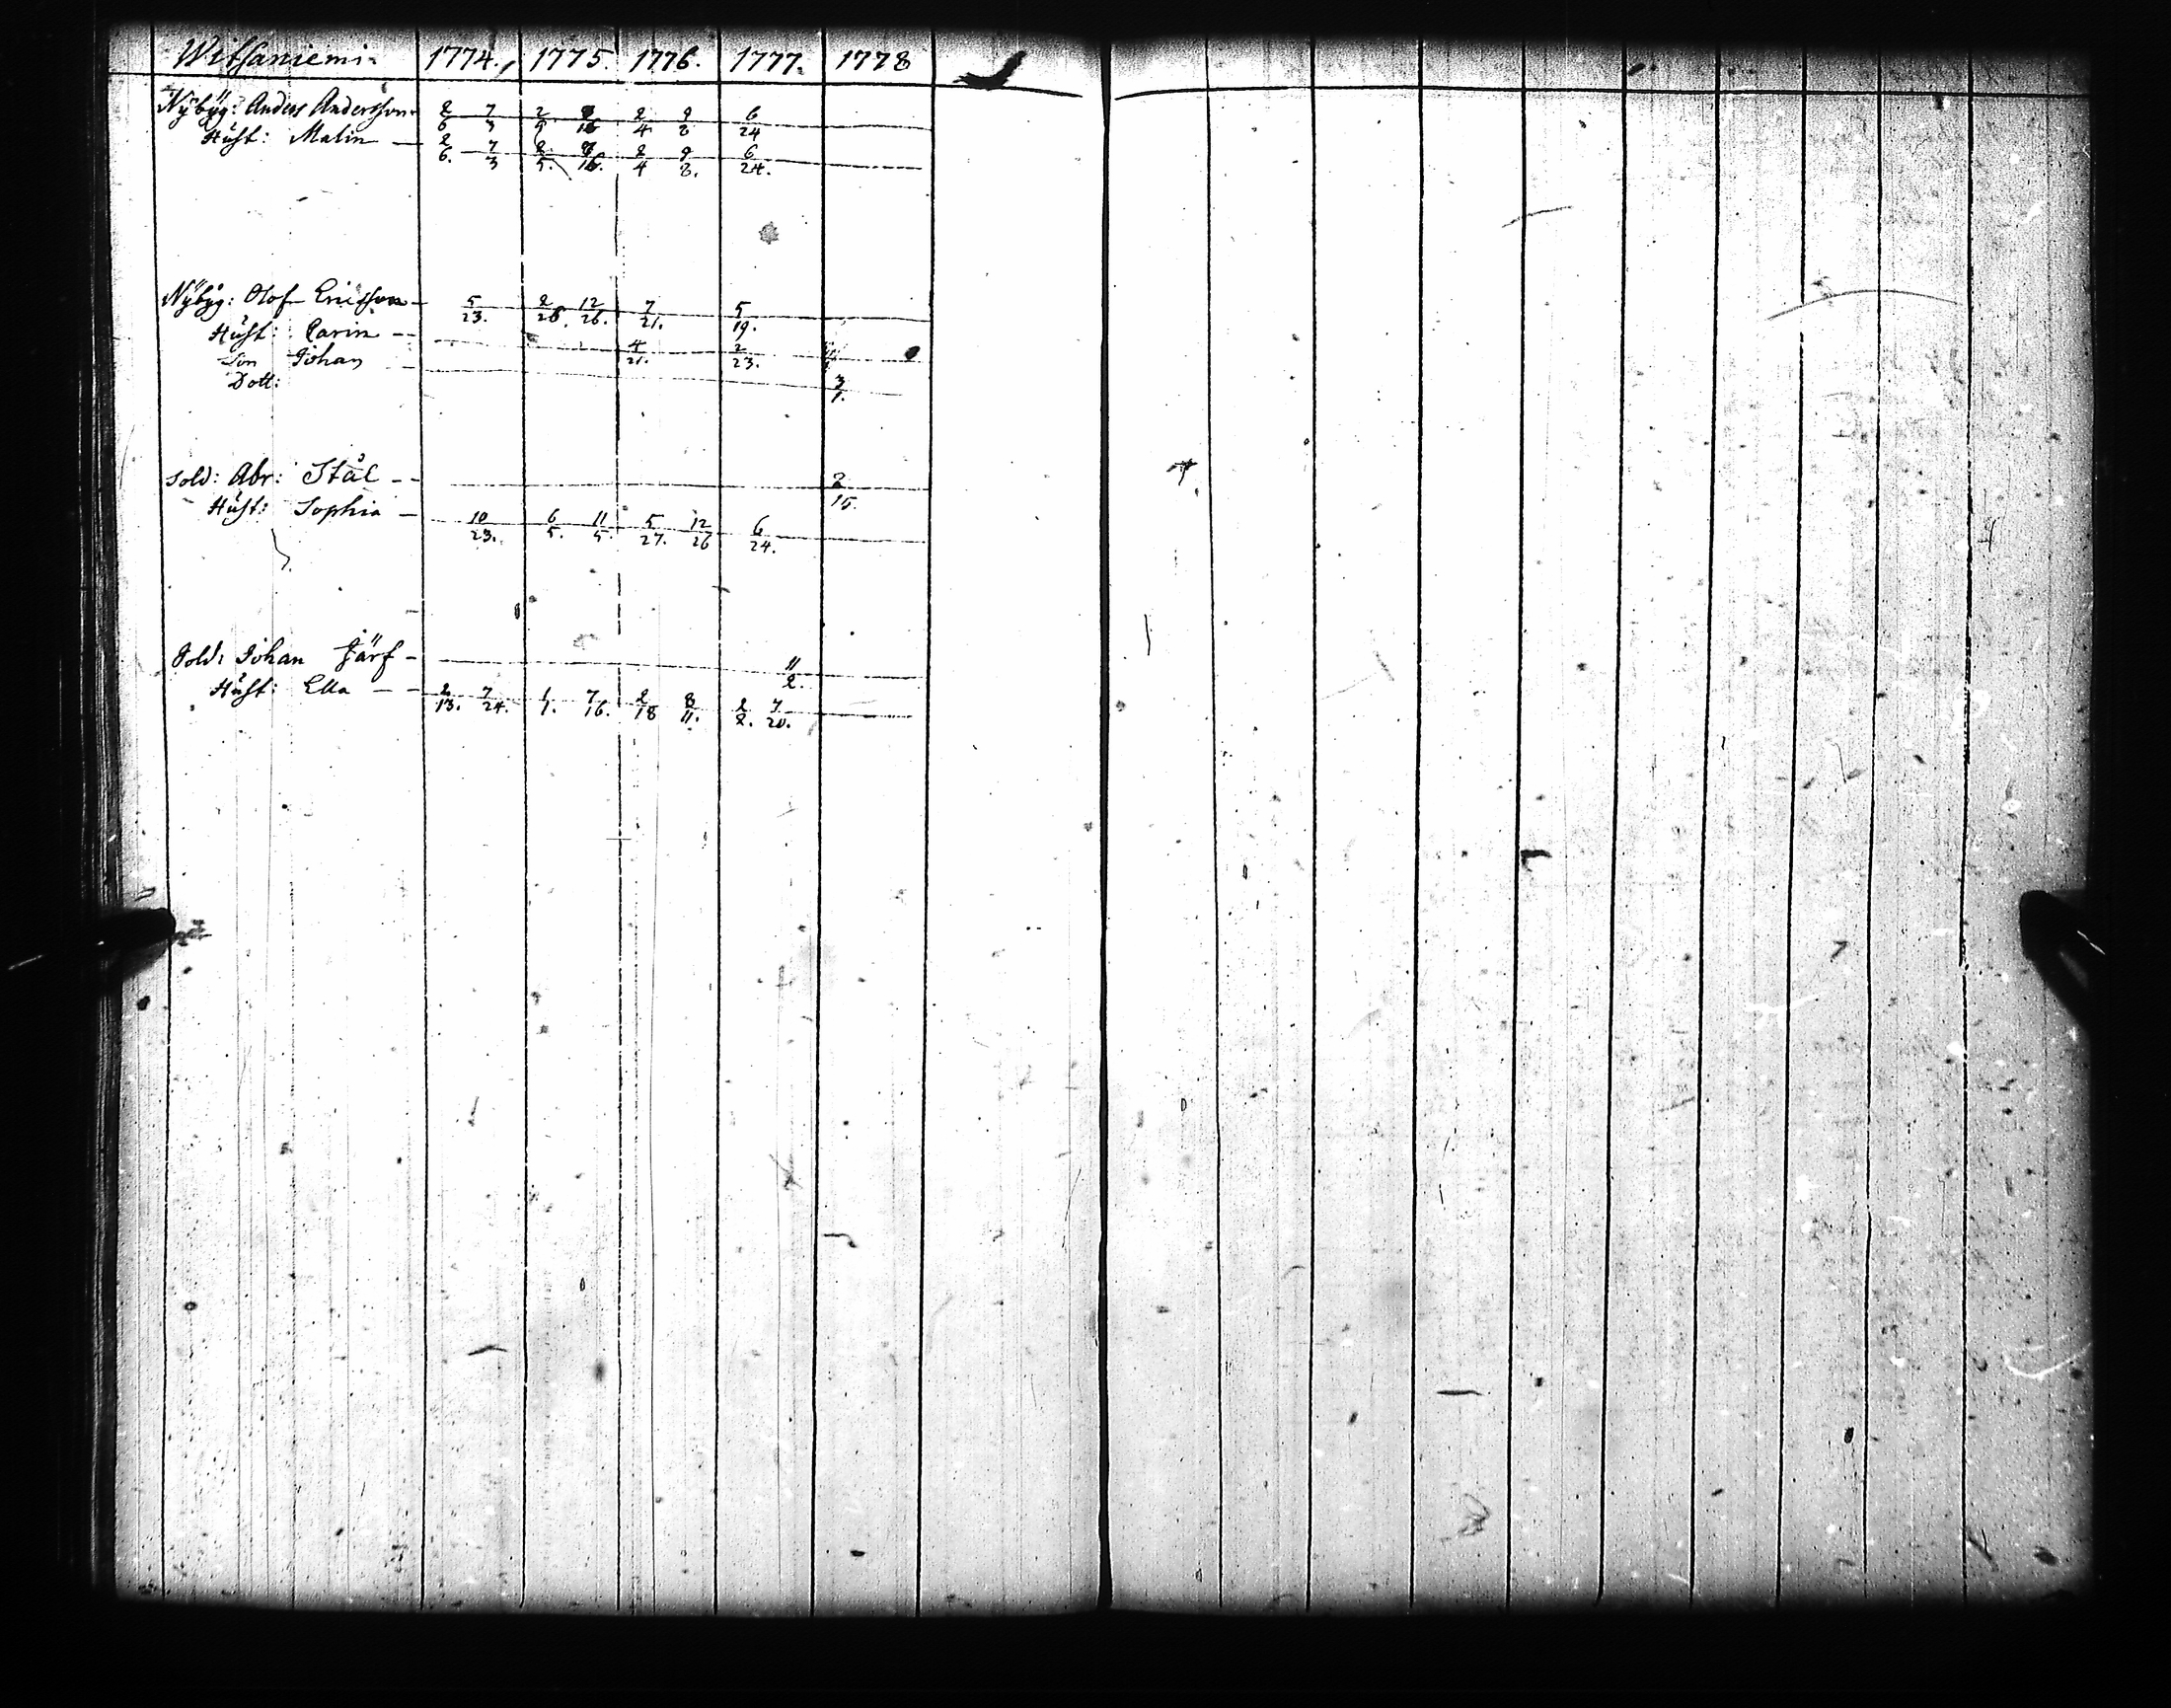 Witsaniemi. 1774. 1775. 1776. 1777. 1778
Nÿbÿg: Anders Andersson 2/6 7/3 2/5 2/4 9/8 6/24
Hust: Malin — 2/6. 7/3 2/5. 2/4 9/8. 6/24.
Nÿbÿg: Olof Ericsson - 5/23. 2/26. 12/26. 7/21. 5/19.
Hust: Carin - 4/21. 2/23.
Son Johan
Dott: 3/1.
Sold: Abr: Stål - - 2/15.
Hust: Sophia - 10/23. 6/5. 11/5. 5/27. 12/26 6/24.
Sold: Johan Järf - 11/2.
Hust: Ella - - 2/13. 7/24. 1/1. 7/16. 2/18 8/11. 2/2. 7/20.